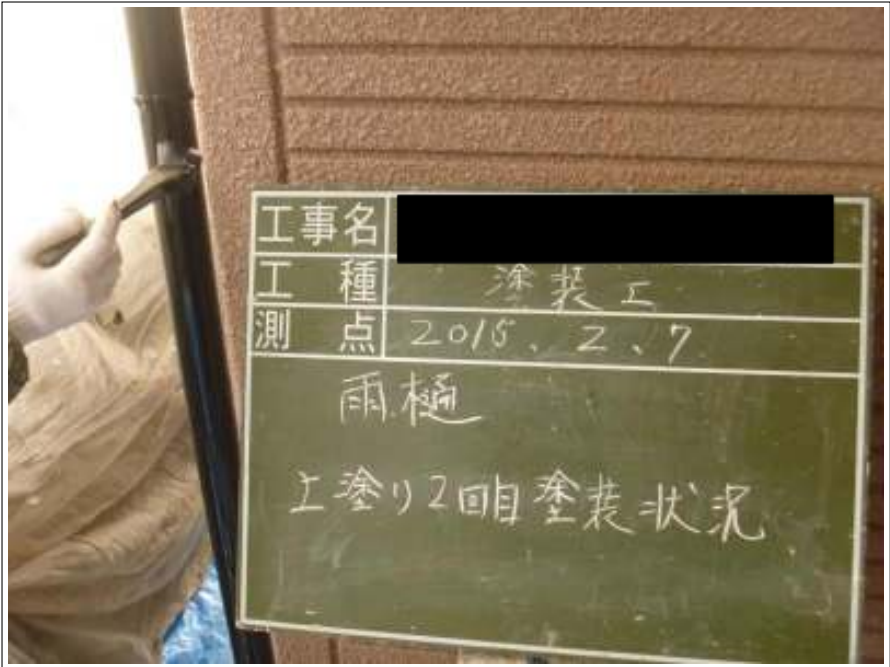 工事名
工種 塗装工
測点 2015、2、7
雨樋
上塗り2回目塗装状況